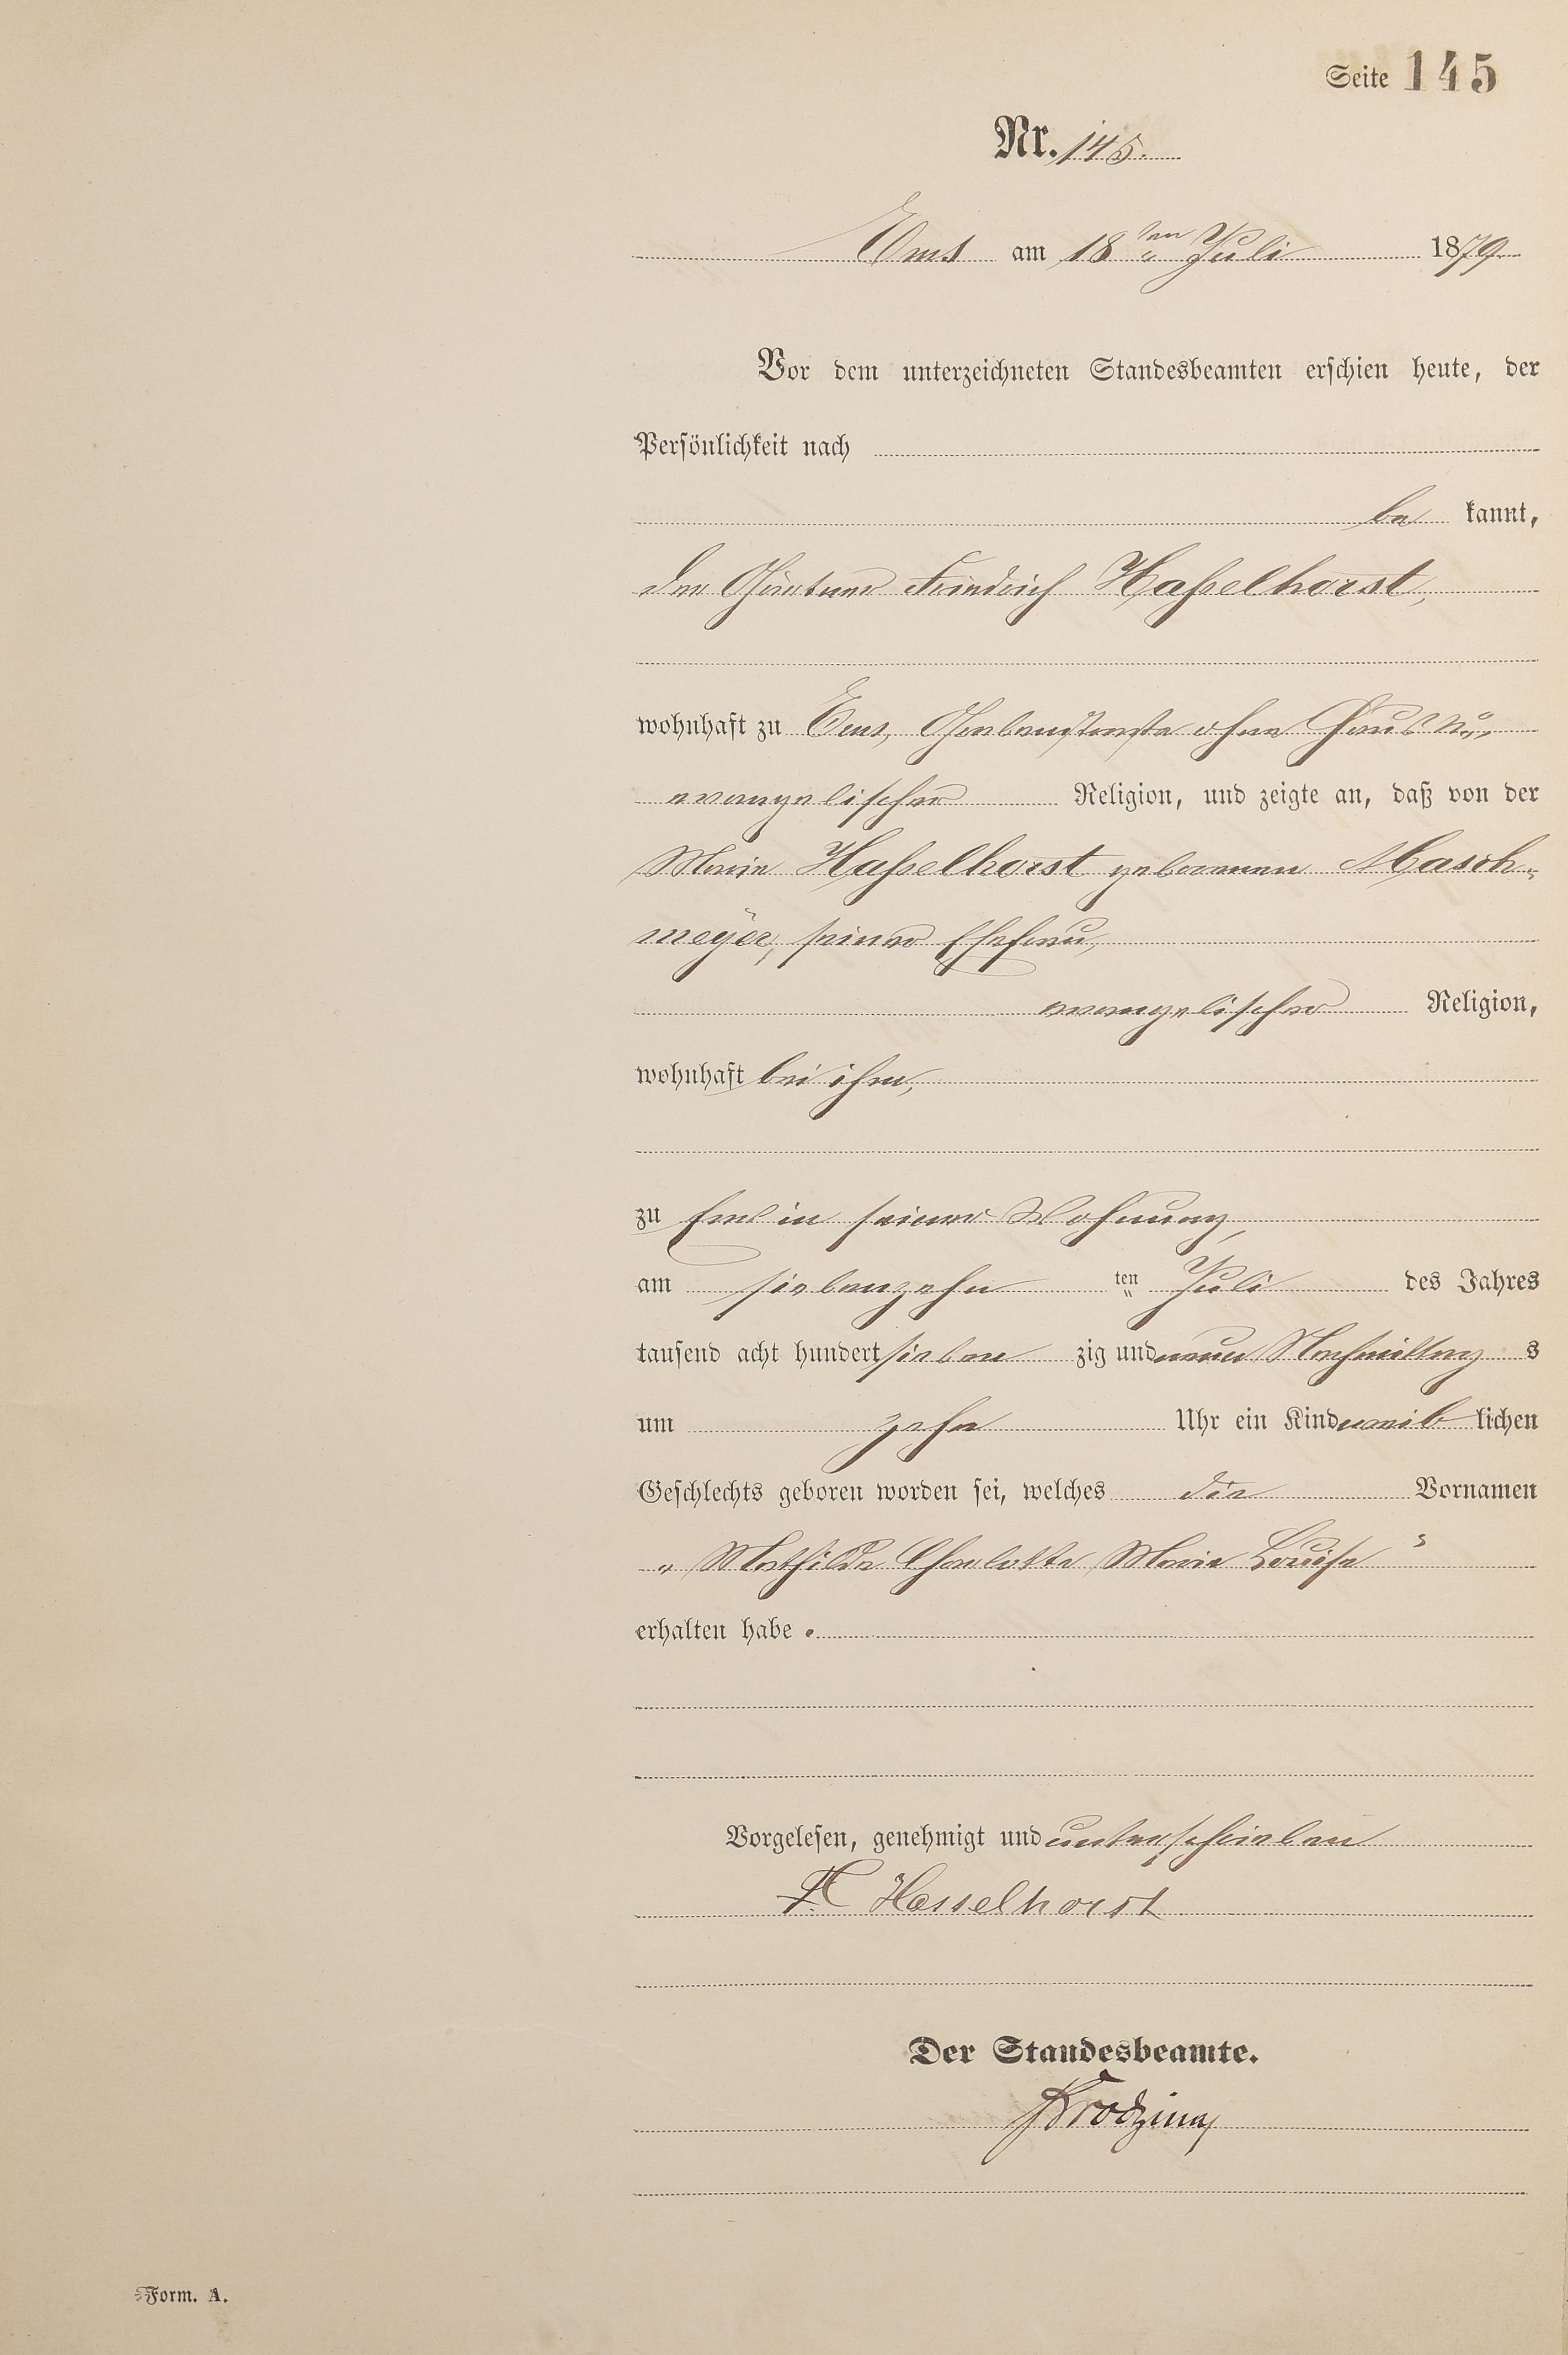 Seite 145
Nr. 145.
Ems am 18ten Juli 1879
Vor dem unterzeichneten Standesbeamten erschien heute, der
Persönlichkeit nach
be kannt,
der Gärtner Friedrich Haßelhorst,
wohnhaft zu Ems, Grabenstraße ohne Haus No,
evangelischer Religion, und zeigte an, daß von der
Marie Haßelhorst geborenen Masch-
meyer, seiner Ehefrau,
evangelischer Religion,
wohnhaft bei ihm,
zu Ems in seiner Wohnung,
am siebenzehn ten Juli des Jahres
tausend acht hundert sieben zig und neun Nachmittag s
um zehn Uhr ein Kind weib lichen
Geschlechts geboren worden sei, welches die Vornamen
„Mathilde Charlotte Marie Louise"
erhalten habe.
Vorgelesen, genehmigt und unterschrieben
F. Hasselhorst
Der Standesbeamte.
Form. A.